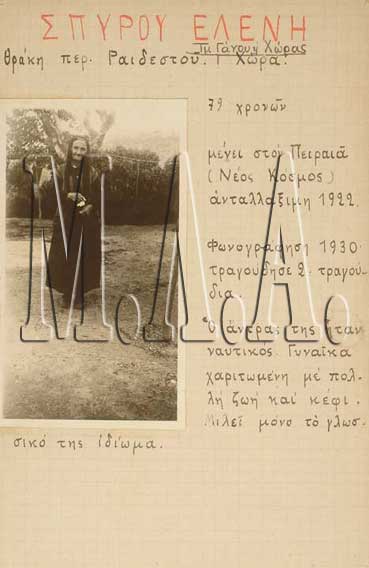 ΣΠΥΡΟΥ ΕΛΕΝΗ
Τμ Γάνου ή Χώρας
Θράκη περ. Ραιδεστού. Χώρα.
79 χρονῶν
μένει στόν Πειραιᾶ
(Νέος Κόσμος)
ἀνταλλάξιμη 1922.
Φωνογράφηση 1930
τραγούδησε 2 τραγού-
δια.
Ὁ ἄντρας της ἦταν
ναυτικός. Γυναῖκα
χαριτωμένη μέ πολ-
λή ζωή καί κέφι.
Μιλεῖ μόνο τό γλωσ-
σικό της ἰδίωμα.
Μ.Λ.Α.